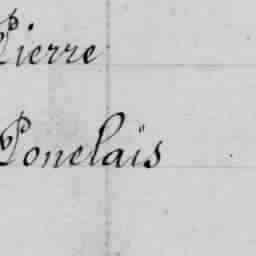 Pierre
Ponclais